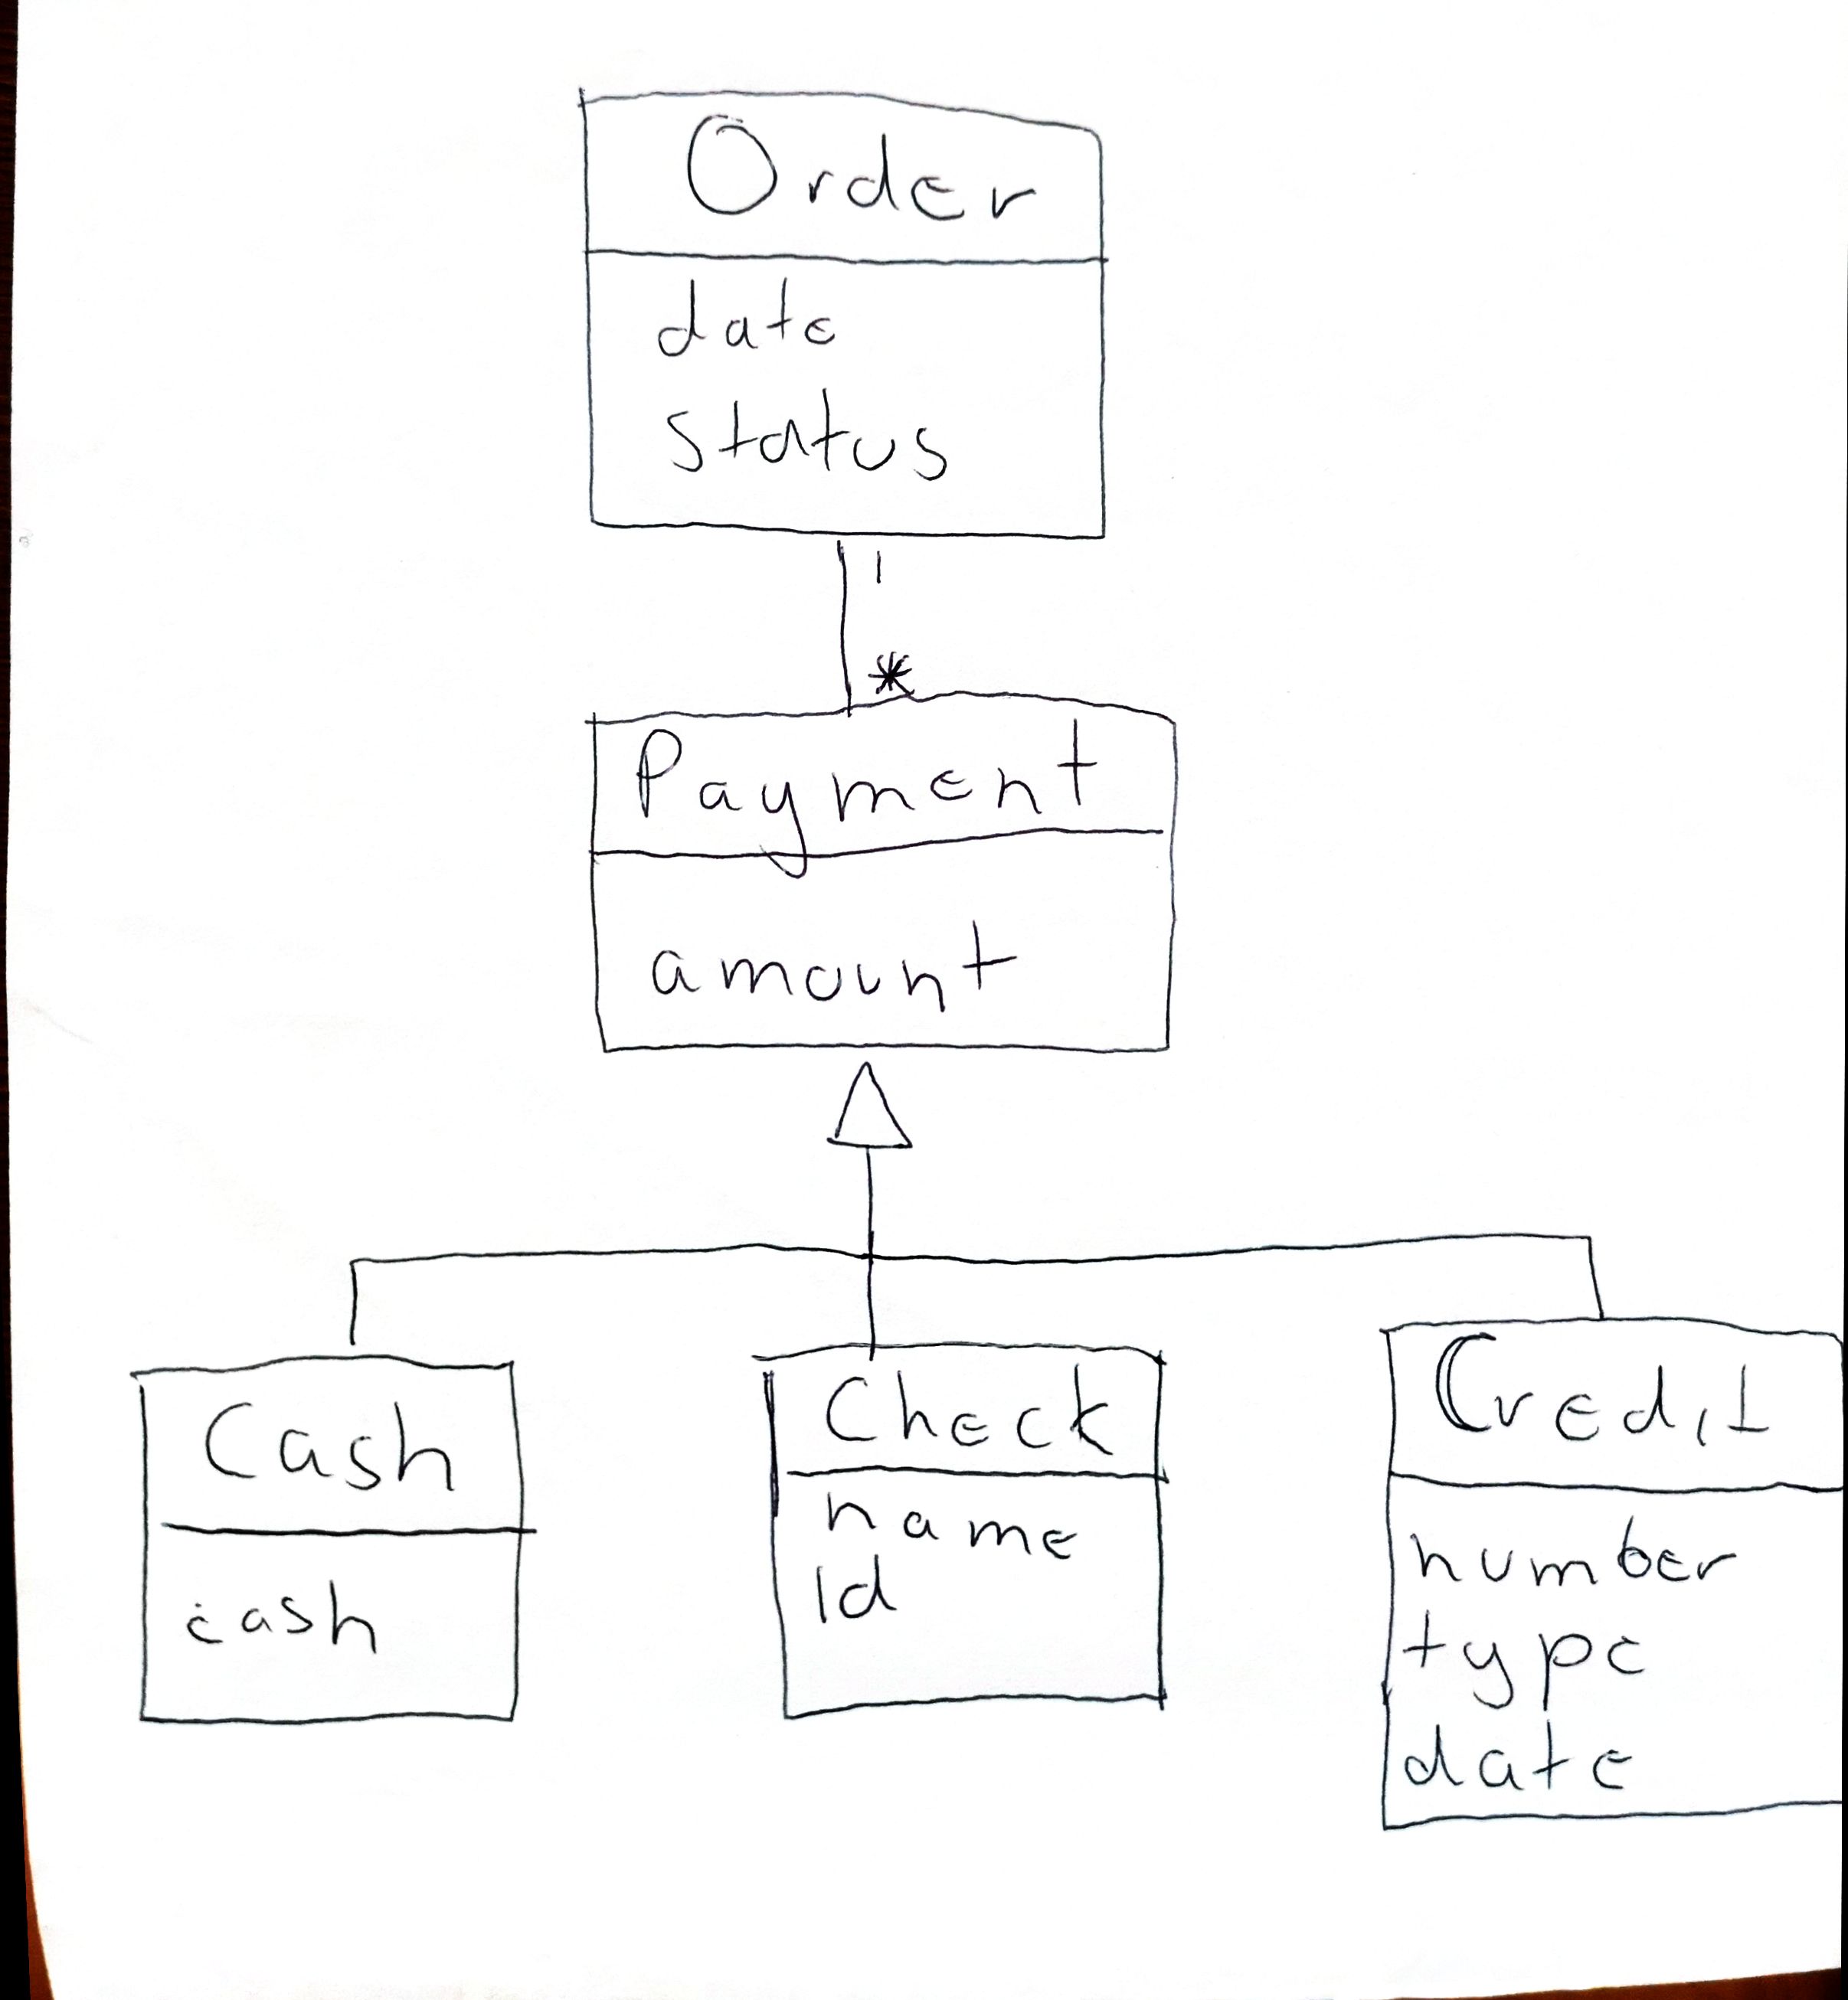 Order
date
status
1
*
Payment
amount
Cash
cash
Check
name
id
Credit
number
type
date